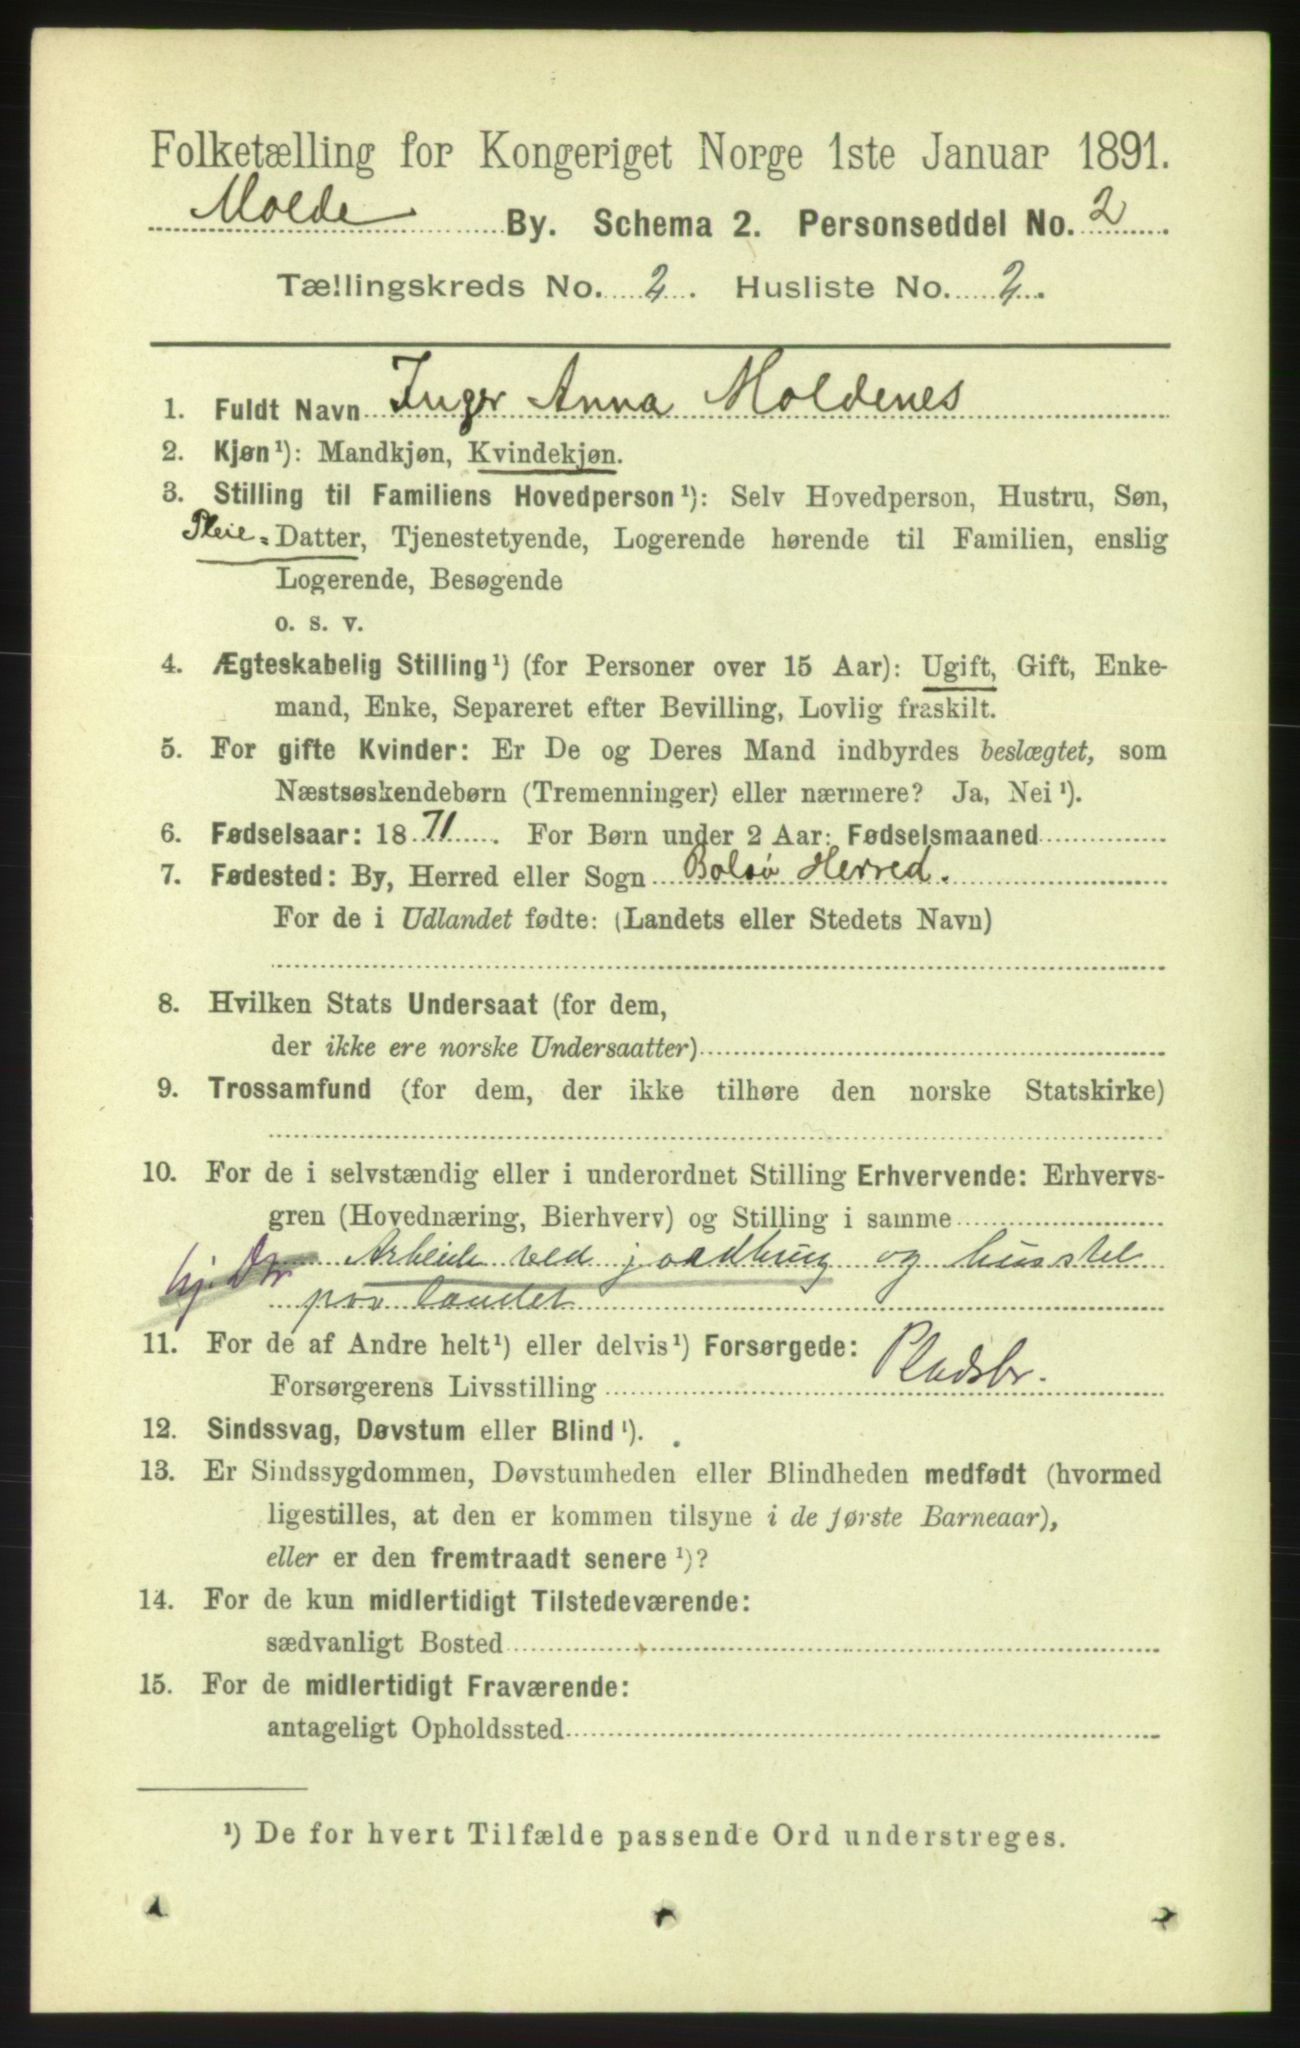 Folketælling for Kongeriget Norge 1ste Januar 1891.
Molde By. Schema 2. Personseddel No. 2
Tællingskreds No. 2. Husliste No. 2.
1. Fuldt Navn Inger Anna Moldenes
2. Kjøn¹): Mandkjøn, Kvindekjøn.
3. Stilling til Familiens Hovedperson¹): Selv Hovedperson, Hustru, Søn,
Pleie-Datter, Tjenestetyende, Logerende hørende til Familien, enslig
Logerende, Besøgende
o. s. v.
4. Ægteskabelig Stilling¹) (for Personer over 15 Aar): Ugift, Gift, Enke-
mand, Enke, Separeret efter Bevilling, Lovlig fraskilt.
5. For gifte Kvinder: Er De og Deres Mand indbyrdes beslægtet, som
Næstsøskendebørn (Tremenninger) eller nærmere? Ja, Nei¹).
6. Fødselsaar: 1871. For Børn under 2 Aar: Fødselsmaaned
7. Fødested: By, Herred eller Sogn Bolsø Herred.
For de i Udlandet fødte: (Landets eller Stedets Navn)
8. Hvilken Stats Undersaat (for dem,
der ikke ere norske Undersaatter)
9. Trossamfund (for dem, der ikke tilhøre den norske Statskirke)
10. For de i selvstændig eller i underordnet Stilling Erhvervende: Erhvervs-
gren (Hovednæring, Bierhverv) og Stilling i samme
hj. Dtr Arbeide ved jordbrug og husstel
paa landet
11. For de af Andre helt¹) eller delvis¹) Forsørgede:
Forsørgerens Livsstilling Pladsbr.
12. Sindssvag, Døvstum eller Blind¹).
13. Er Sindssygdommen, Døvstumheden eller Blindheden medfødt (hvormed
ligestilles, at den er kommen tilsyne i de første Barneaar),
eller er den fremtraadt senere¹)?
14. For de kun midlertidigt Tilstedeværende:
sædvanligt Bosted
15. For de midlertidigt Fraværende:
antageligt Opholdssted
¹) De for hvert Tilfælde passende Ord understreges.